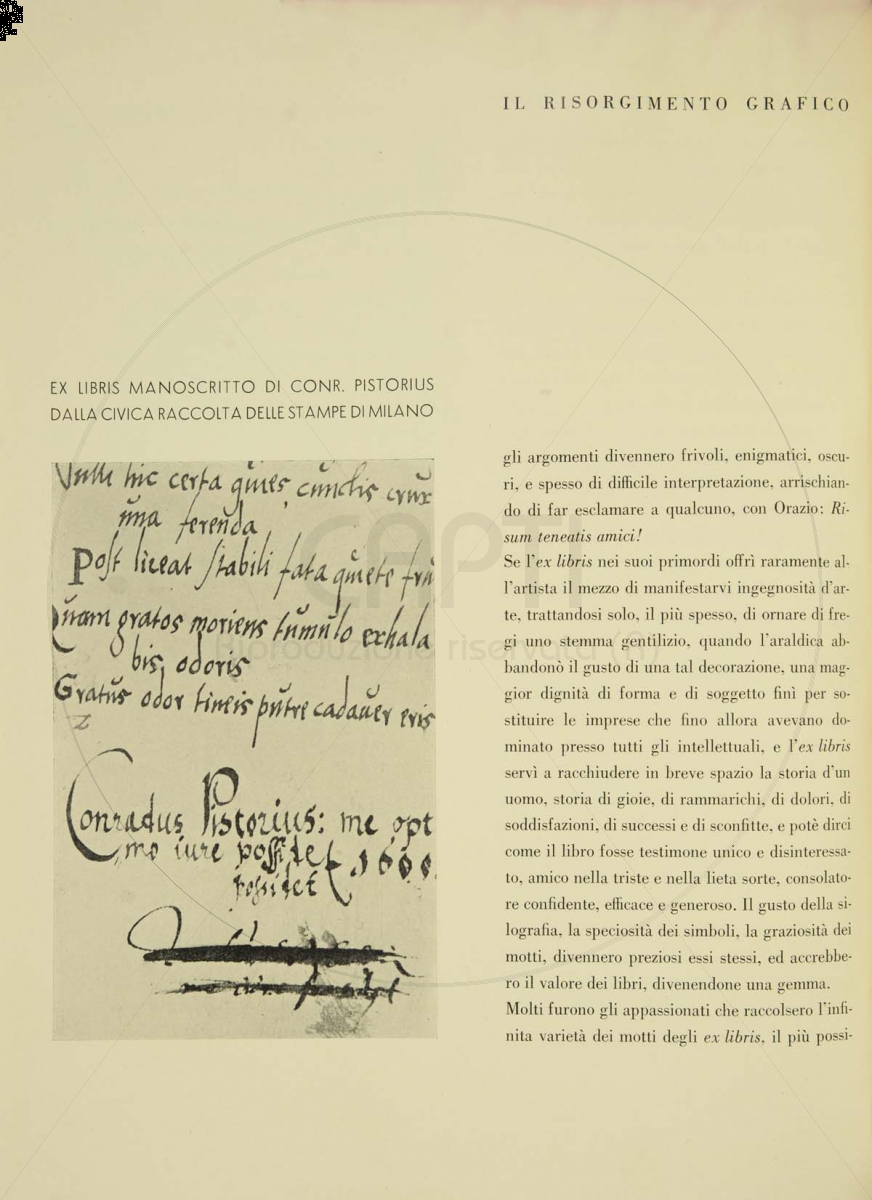 IL RISORGIMENTO GRAFICO
EX LIBRIS MANOSCRITTO DI CONR. PISTORIUS
DALLA CIVICA RACCOLTA DELLE STAMPE DI MILANO
Nulli hic certa quies cunctis
ferenda
Post liceat stabili fata quiete
Quam gratos moriens tumulo exhala
bis odoris
Gratus odor tineis putre cadauer eris
Conradus Pistorius: me opt
mo iure possidet
possidet
gli argomenti divennero frivoli, enigmatici, oscu-
ri, e spesso di difficile interpretazione, arrischian-
do di far esclamare a qualcuno, con Orazio: Ri-
sum teneatis amici!
Se l'ex libris nei suoi primordi offrì raramente al-
l'artista il mezzo di manifestarvi ingegnosità d'ar-
te, trattandosi solo, il più spesso, di ornare di fre-
gi uno stemma gentilizio, quando l'araldica ab-
bandonò il gusto di una tal decorazione, una mag-
gior dignità di forma e di soggetto finì per so-
stituire le imprese che fino allora avevano do-
minato presso tutti gli intellettuali, e l'ex libris
servì a racchiudere in breve spazio la storia d'un
uomo, storia di gioie, di rammarichi, di dolori, di
soddisfazioni, di successi e di sconfitte, e potè dirci
come il libro fosse testimone unico e disinteressa-
to, amico nella triste e nella lieta sorte, consolato-
re confidente, efficace e generoso. Il gusto della si-
lografia, la speciosità dei simboli, la graziosità dei
motti, divennero preziosi essi stessi, ed accrebbe-
ro il valore dei libri, divenendone una gemma.
Molti furono gli appassionati che raccolsero l'infi-
nita varietà dei motti degli ex libris, il più possi-